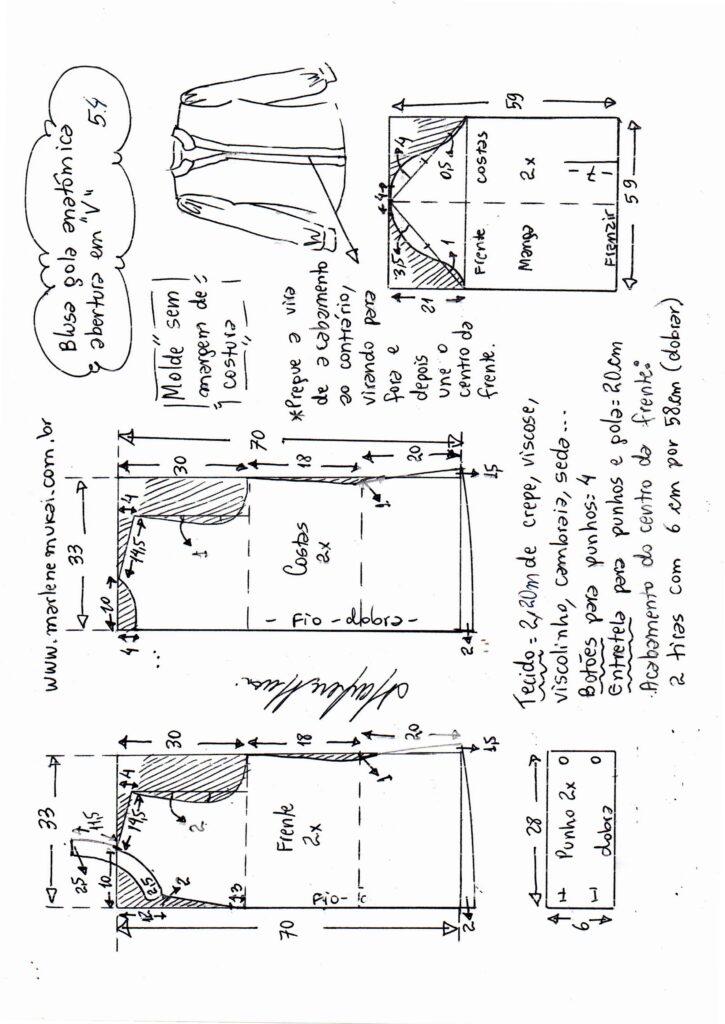 www.marlenemukai.com.br
Blusa gola anatômica
e abertura em "V"
54
Molde sem
margem de
costura
*Pregue a vira
de acabamento
ao contrário,
virando para
fora e
depois
une o
centro da
frente.
33
10
11,5
25
25
12
2
3
14,5
4
2
30
18
20
70
1
1,5
2
Frente
2x
Fio
33
10
4
14,5
4
1
30
18
20
70
1
1,5
2
Costas
2x
- Fio - dobra -
4
3,5
4
0,5
1
21
59
59
Frente
Costas
Manga
2x
7
1
Franzir
28
6
Punho 2x
dobra
Tecido = 2,20m de crepe, viscose,
viscolinho, cambraia, seda...
Botões para punhos: 4
Entretela para punhos e gola = 20cm
Acabamento do centro da frente:
2 tiras com 6 cm por 58cm (dobrar)